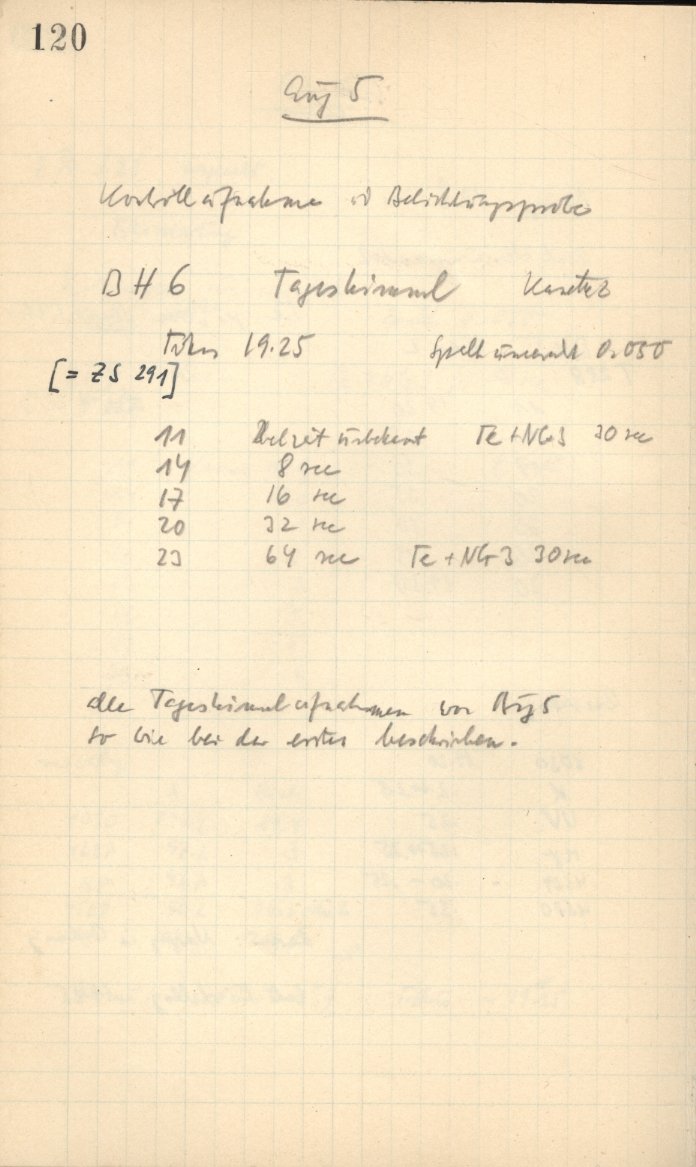 120
Aug 5
Kontrollaufnahme u Belichtungsprobe
BH 6 Tageshimmel
19.25 Spalt 0.050
[= ZS 291]
11 Belzeit unbekannt Te + NG3 30 sec
14 8 sec
17 16 sec
20 32 sec
23 64 sec Te + NG3 30 sec
alle Tageshimmelaufnahmen von Aug 5
so wie bei der ersten beschrieben.